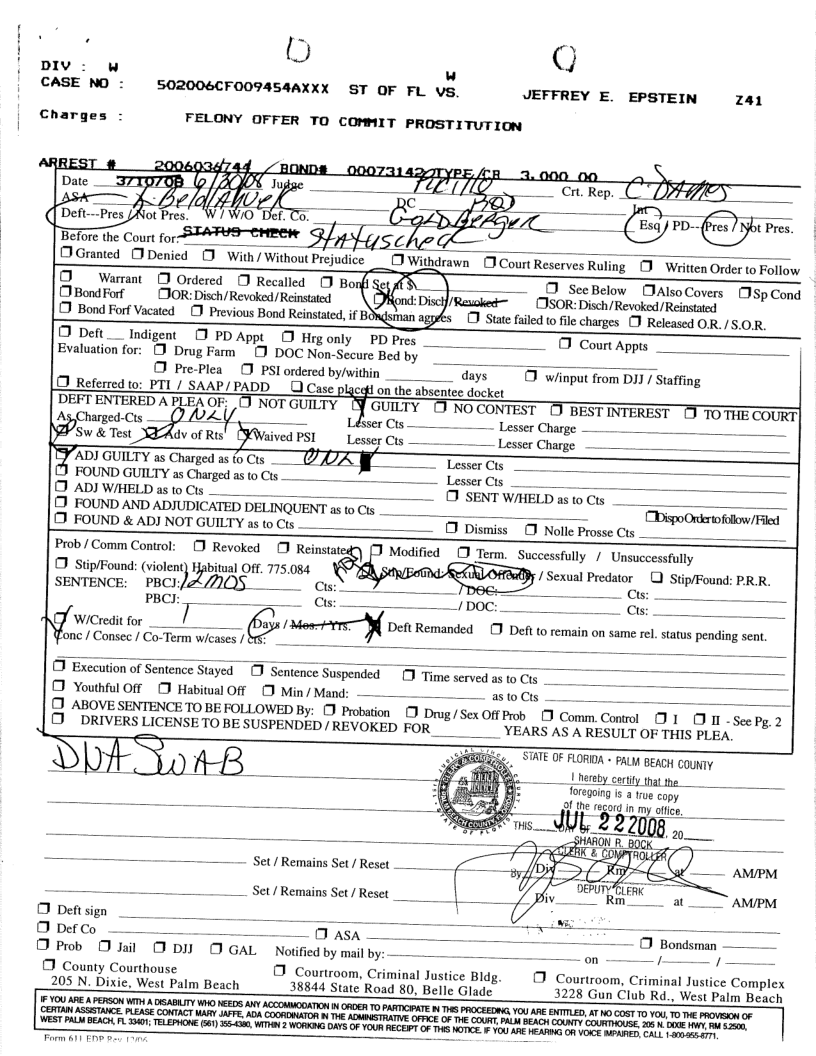 DIV : W W
CASE NO : 502006CF009454AXXX ST OF FL VS. JEFFREY E. EPSTEIN Z41
Charges : FELONY OFFER TO COMMIT PROSTITUTION
ARREST # 2006036744 BOND# 00073142 TYPE/CR 3,000 00
Date 3/10/08 6/30/08 Judge Crt. Rep. C. DAMOS
ASA L. Belohlavek DC Int
Deft---Pres / Not Pres. W / W/O Def. Co. GOLDBERGER Esq / PD--Pres / Not Pres.
Before the Court for: STATUS CHECK Status check
Granted Denied With / Without Prejudice Withdrawn Court Reserves Ruling Written Order to Follow
Warrant Ordered Recalled Bond Set at $ See Below Also Covers Sp Cond
Bond Forf OR: Disch / Revoked / Reinstated Bond: Disch / Revoked SOR: Disch / Revoked / Reinstated
Bond Forf Vacated Previous Bond Reinstated, if Bondsman agrees State failed to file charges Released O.R. / S.O.R.
Deft Indigent PD Appt Hrg only PD Pres Court Appts
Evaluation for: Drug Farm DOC Non-Secure Bed by
Pre-Plea PSI ordered by/within days w/input from DJJ / Staffing
Referred to: PTI / SAAP / PADD Case placed on the absentee docket
DEFT ENTERED A PLEA OF: NOT GUILTY GUILTY NO CONTEST BEST INTEREST TO THE COURT
As Charged-Cts ONLY Lesser Cts Lesser Charge
Sw & Test Adv of Rts Waived PSI Lesser Cts Lesser Charge
ADJ GUILTY as Charged as to Cts ONLY Lesser Cts
FOUND GUILTY as Charged as to Cts Lesser Cts
ADJ W/HELD as to Cts SENT W/HELD as to Cts
FOUND AND ADJUDICATED DELINQUENT as to Cts Dispo Order to follow / Filed
FOUND & ADJ NOT GUILTY as to Cts Dismiss Nolle Prosse Cts
Prob / Comm Control: Revoked Reinstated Modified Term. Successfully / Unsuccessfully
Stip/Found: (violent) Habitual Off. 775.084 Not Stip/Found: Sexual Offender / Sexual Predator Stip/Found: P.R.R.
SENTENCE: PBCJ: 12 MOS Cts: / DOC: Cts:
PBCJ: Cts: / DOC: Cts:
W/Credit for 1 Days / Mos. / Yrs. Deft Remanded Deft to remain on same rel. status pending sent.
Conc / Consec / Co-Term w/cases / cts:
Execution of Sentence Stayed Sentence Suspended Time served as to Cts
Youthful Off Habitual Off Min / Mand: as to Cts
ABOVE SENTENCE TO BE FOLLOWED By: Probation Drug / Sex Off Prob Comm. Control I II - See Pg. 2
DRIVERS LICENSE TO BE SUSPENDED / REVOKED FOR YEARS AS A RESULT OF THIS PLEA.
DNA SWAB
STATE OF FLORIDA • PALM BEACH COUNTY
I hereby certify that the
foregoing is a true copy
of the record in my office.
THIS DAY OF JUL 22 2008, 20
SHARON R. BOCK
CLERK & COMPTROLLER
Set / Remains Set / Reset By Div Rm at AM/PM
DEPUTY CLERK
Set / Remains Set / Reset Div Rm at AM/PM
Deft sign
Def Co ASA Bondsman
Prob Jail DJJ GAL Notified by mail by: on / /
County Courthouse Courtroom, Criminal Justice Bldg. Courtroom, Criminal Justice Complex
205 N. Dixie, West Palm Beach 38844 State Road 80, Belle Glade 3228 Gun Club Rd., West Palm Beach
IF YOU ARE A PERSON WITH A DISABILITY WHO NEEDS ANY ACCOMMODATION IN ORDER TO PARTICIPATE IN THIS PROCEEDING, YOU ARE ENTITLED, AT NO COST TO YOU, TO THE PROVISION OF
CERTAIN ASSISTANCE. PLEASE CONTACT MARY JAFFE, ADA COORDINATOR IN THE ADMINISTRATIVE OFFICE OF THE COURT, PALM BEACH COUNTY COURTHOUSE, 205 N. DIXIE HWY, RM 5.2500,
WEST PALM BEACH, FL 33401; TELEPHONE (561) 355-4380, WITHIN 2 WORKING DAYS OF YOUR RECEIPT OF THIS NOTICE. IF YOU ARE HEARING OR VOICE IMPAIRED, CALL 1-800-955-8771.
Form 611 EDP Rev 12/06